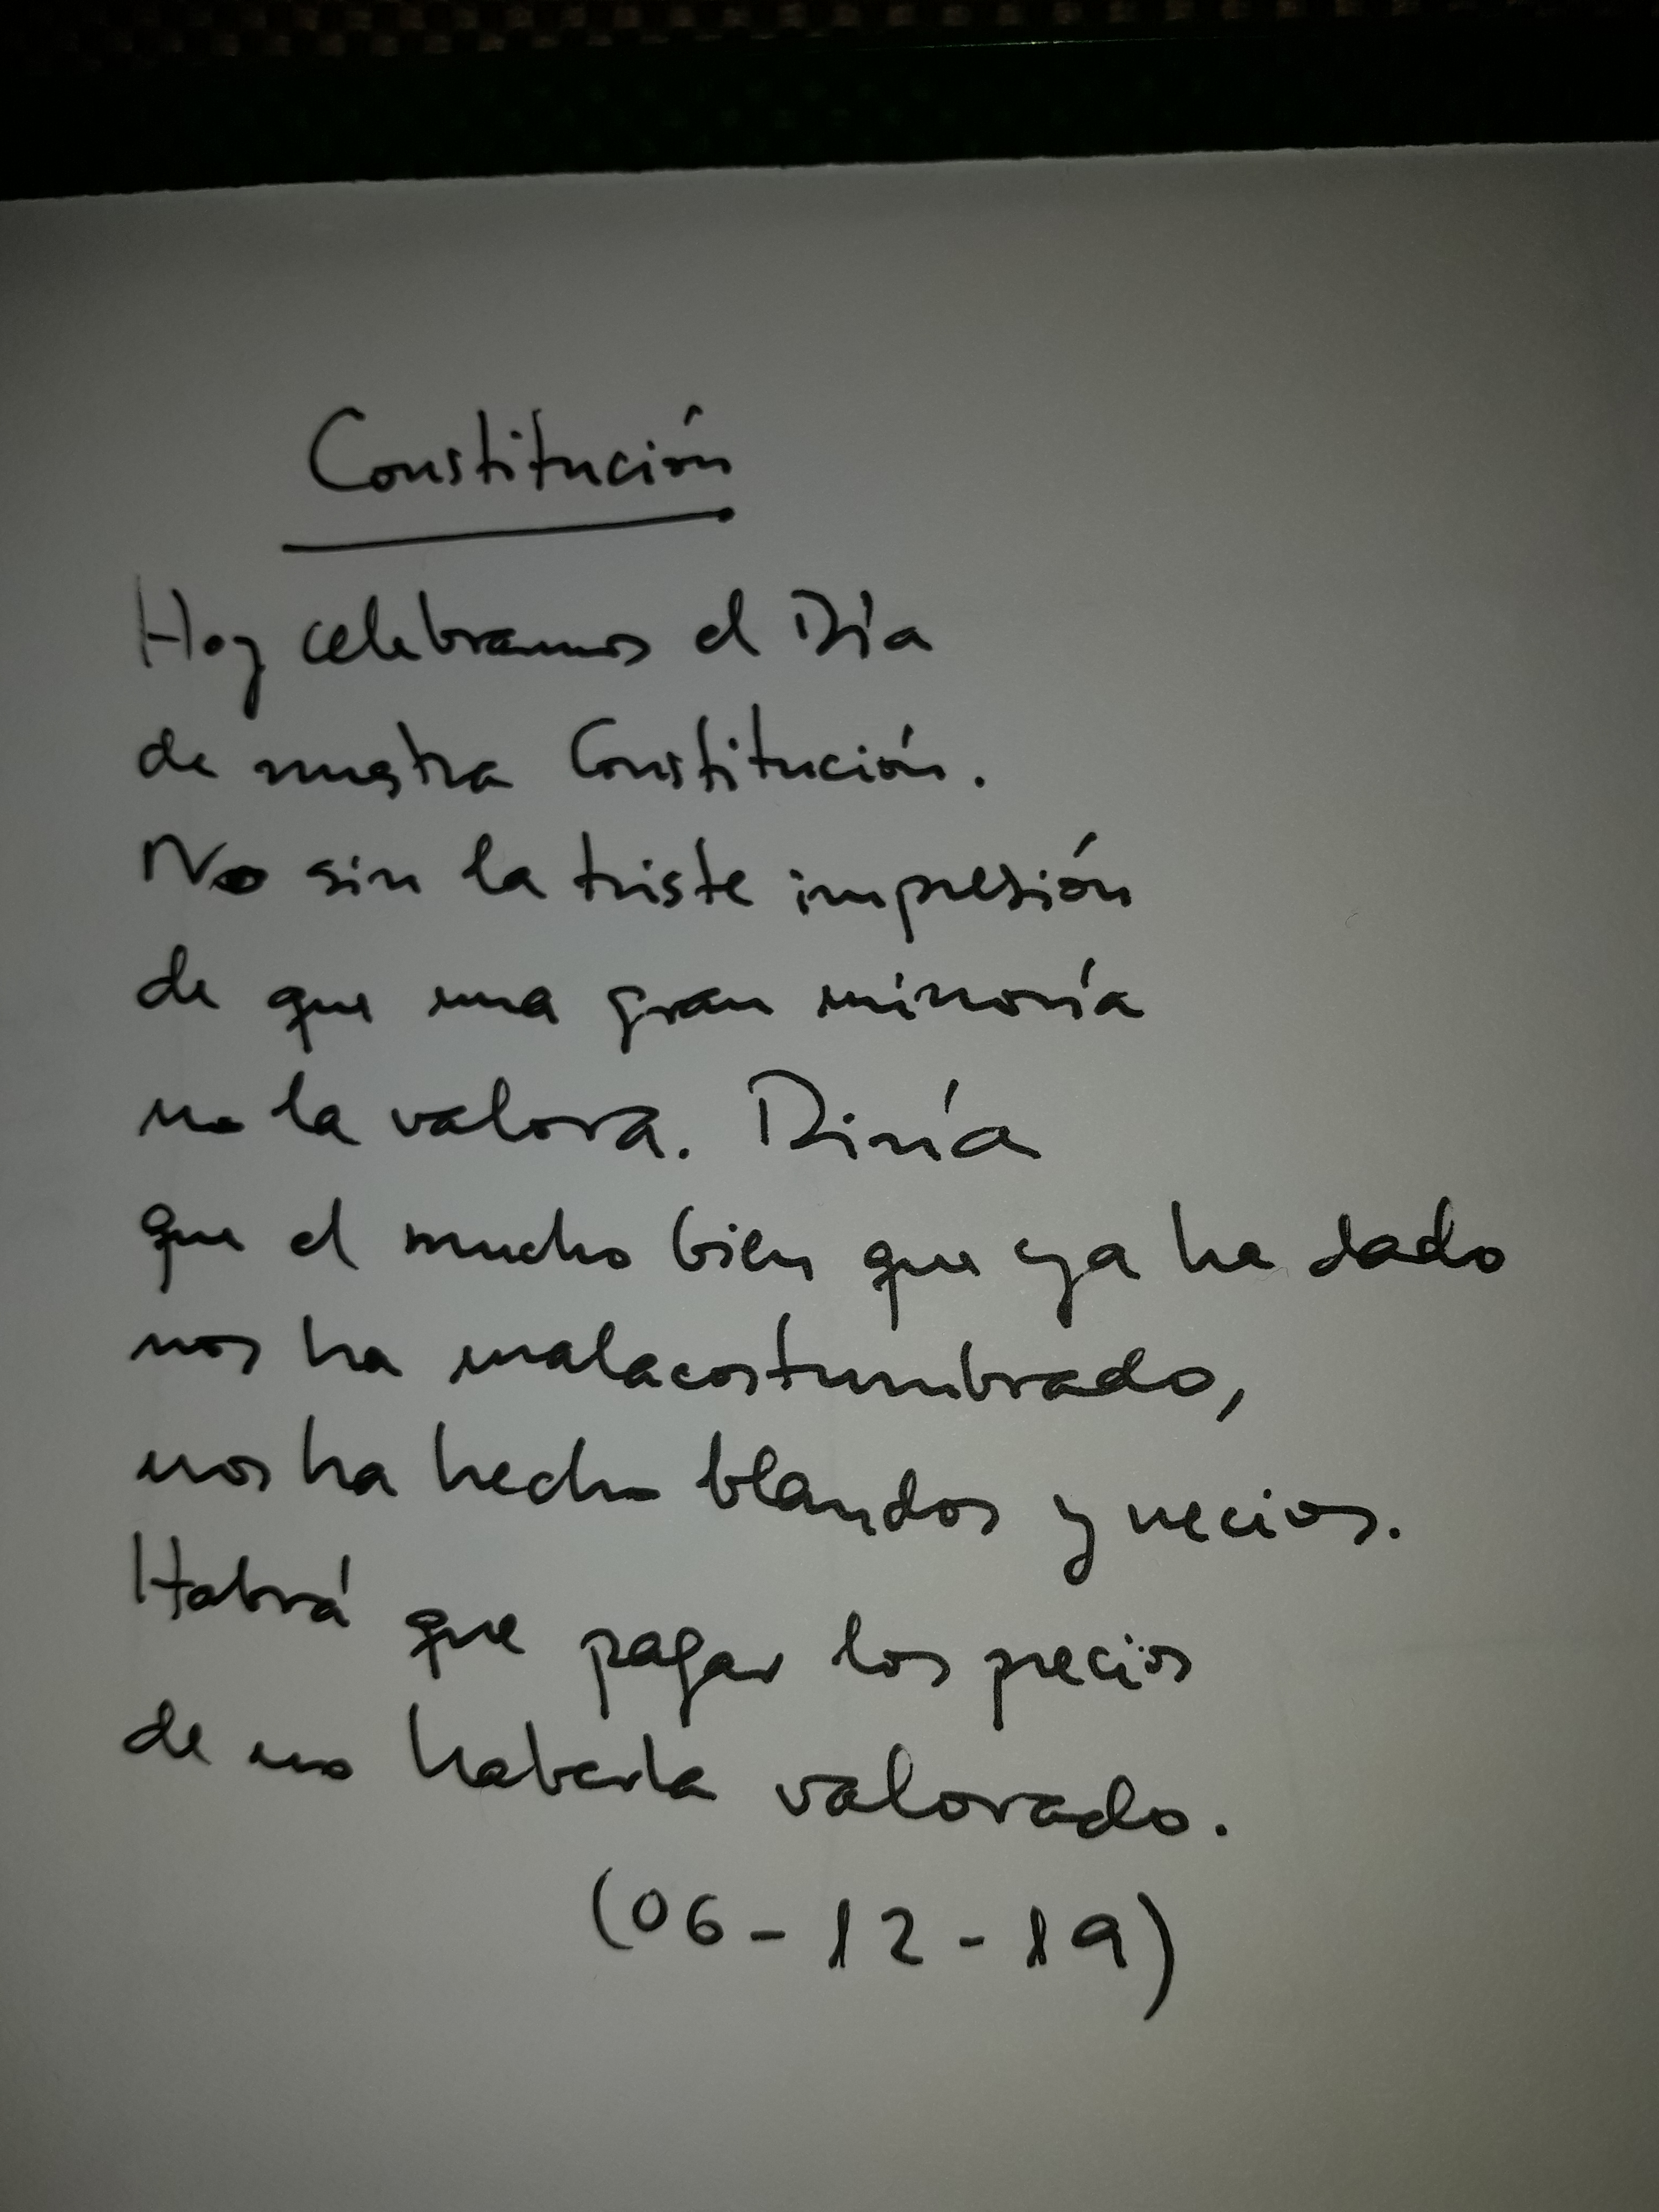 Constitución
Hoy celebramos el Día
de nuestra Constitución.
No sin la triste impresión
de que una gran minoría
no la valora. Diría
que el mucho bien que ya ha dado
nos ha malacostumbrado,
nos ha hecho blandos y necios.
Habrá que pagar los precios
de no haberla valorado.
(06-12-19)